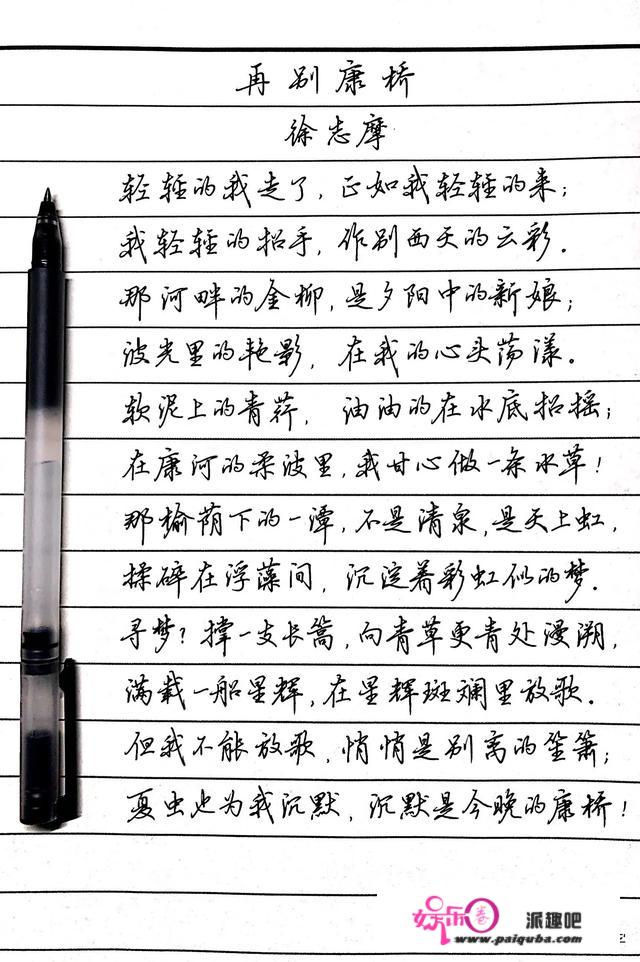 再别康桥
徐志摩
轻轻的我走了，正如我轻轻的来；
我轻轻的招手，作别西天的云彩．
那河畔的金柳，是夕阳中的新娘；
波光里的艳影，在我的心头荡漾．
软泥上的青荇，油油的在水底招摇；
在康河的柔波里，我甘心做一条水草！
那榆荫下的一潭，不是清泉，是天上虹，
揉碎在浮藻间，沉淀着彩虹似的梦．
寻梦？撑一支长篙，向青草更青处漫溯，
满载一船星辉，在星辉斑斓里放歌．
但我不能放歌，悄悄是别离的笙箫；
夏虫也为我沉默，沉默是今晚的康桥！
娱乐圈 派趣吧
www.paiquba.com
2